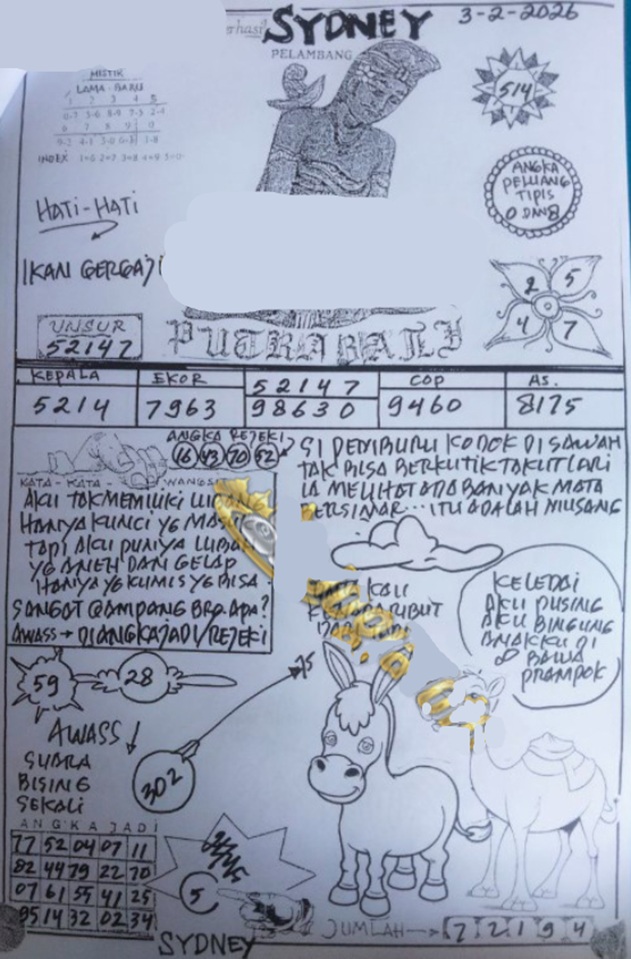 SYDNEY 3-2-2026
PELAMBANG
MISTIK
LAMA - BARU
1 2 3 4 5
6 7 8 9 0
INDEX 1=0 2=7 3=8 4=9 5=0
514
ANGKA
PELUANG
TIPIS
0 DAN 8
HATI-HATI
IKAN GERGAJI
2 5
4 7
UNSUR
52147
PUTRA BALI
KEPALA EKOR 52147 COP AS.
5214 7963 98630 9460 8175
ANGKA REJEKI
16 43 70 52
SI PEMBURU KODOK DI SAWAH
TAK BISA BERKUTIK TAKUT LARI
IA MELIHAT ADA BANYAK MATA
BERSINAR... ITU ADALAH MUSANG
KATA - KATA WANGSIT
AKU TAK MEMILIKI
HANYA KUNCI YG
TAPI AKU PUNYA
YG ANEH DAN GELAP
HANYA YG KUMIS YG BISA
SANGAT GAMPANG BRO APA?
AWASS → DIANGKA JADI/REJEKI
KALI
RIBUT
KELEDAI
AKU PUSING
AKU BINGUNG
ANAKKU DI
BAWA
PRAMPOK
59 28
75
AWASS
SUARA
BISING
SEKALI
302
ANGKA JADI
77 52 04 07 11
82 44 79 22 70
07 61 55 41 25
95 14 32 02 34
5
SYDNEY
JUMLAH → 7 2 1 9 4